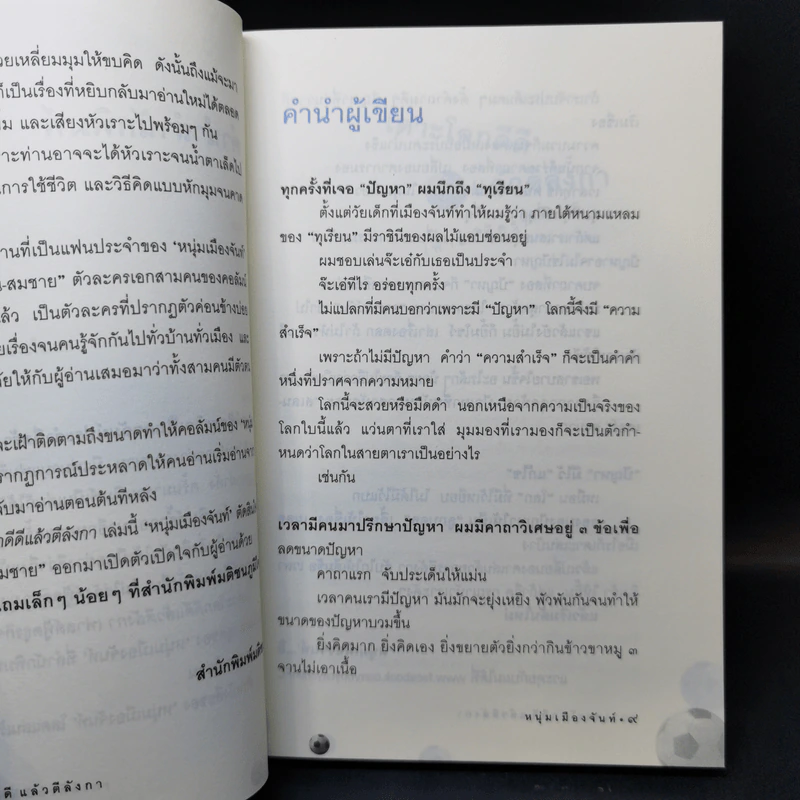 วยเหลี่ยมมุมให้ขบคิด ดังนั้นถึงแม้จะมา
ก็เป็นเรื่องที่หยิบกลับมาอ่านใหม่ได้ตลอด
ม และเสียงหัวเราะไปพร้อมๆ กัน
าะท่านอาจจะได้หัวเราะจนน้ำตาเล็ดไป
การใช้ชีวิต และวิธีคิดแบบหักมุมจนคาด
านที่เป็นแฟนประจำของ 'หนุ่มเมืองจันท์'
น-สมชาย" ตัวละครเอกสามคนของคอลัมน์
ล้ว เป็นตัวละครที่ปรากฏตัวค่อนข้างบ่อย
ยเรื่องจนคนรู้จักกันไปทั่วบ้านทั่วเมือง และ
ัยให้กับผู้อ่านเสมอมาว่าทั้งสามคนมีตัวตน
จะเฝ้าติดตามถึงขนาดทำให้คอลัมน์ของ 'หนุ่ม
รากฏการณ์ประหลาดให้คนอ่านเริ่มอ่านจาก
ลับมาอ่านตอนต้นทีหลัง
าดีดีแล้วตีลังกา เล่มนี้ 'หนุ่มเมืองจันท์' ตัดสินใจ
สมชาย" ออกมาเปิดตัวเปิดใจกับผู้อ่านด้วย
ถมเล็กๆ น้อยๆ ที่สำนักพิมพ์มติชนภูมิใ
สำนักพิมพ์มติช
ดี แล้วตีลังกา
คำนำผู้เขียน
ทุกครั้งที่เจอ "ปัญหา" ผมนึกถึง "ทุเรียน"
ตั้งแต่วัยเด็กที่เมืองจันท์ทำให้ผมรู้ว่า ภายใต้หนามแหลม
ของ "ทุเรียน" มีราชินีของผลไม้แอบซ่อนอยู่
ผมชอบเล่นจ๊ะเอ๋กับเธอเป็นประจำ
จ๊ะเอ๋ทีไร อร่อยทุกครั้ง
ไม่แปลกที่มีคนบอกว่าเพราะมี "ปัญหา" โลกนี้จึงมี "ความ
สำเร็จ"
เพราะถ้าไม่มีปัญหา คำว่า "ความสำเร็จ" ก็จะเป็นคำคำ
หนึ่งที่ปราศจากความหมาย
โลกนี้จะสวยหรือมืดดำ นอกเหนือจากความเป็นจริงของ
โลกใบนี้แล้ว แว่นตาที่เราใส่ มุมมองที่เรามองก็จะเป็นตัวกำ-
หนดว่าโลกในสายตาเราเป็นอย่างไร
เช่นกัน
เวลามีคนมาปรึกษาปัญหา ผมมีคาถาวิเศษอยู่ ๓ ข้อเพื่อ
ลดขนาดปัญหา
คาถาแรก จับประเด็นให้แม่น
เวลาคนเรามีปัญหา มันมักจะยุ่งเหยิง พัวพันกันจนทำให้
ขนาดของปัญหาบวมขึ้น
ยิ่งคิดมาก ยิ่งคิดเอง ยิ่งขยายตัวยิ่งกว่ากินข้าวขาหมู ๓
จานไม่เอาเนื้อ
หนุ่มเมืองจันท์ • ๙